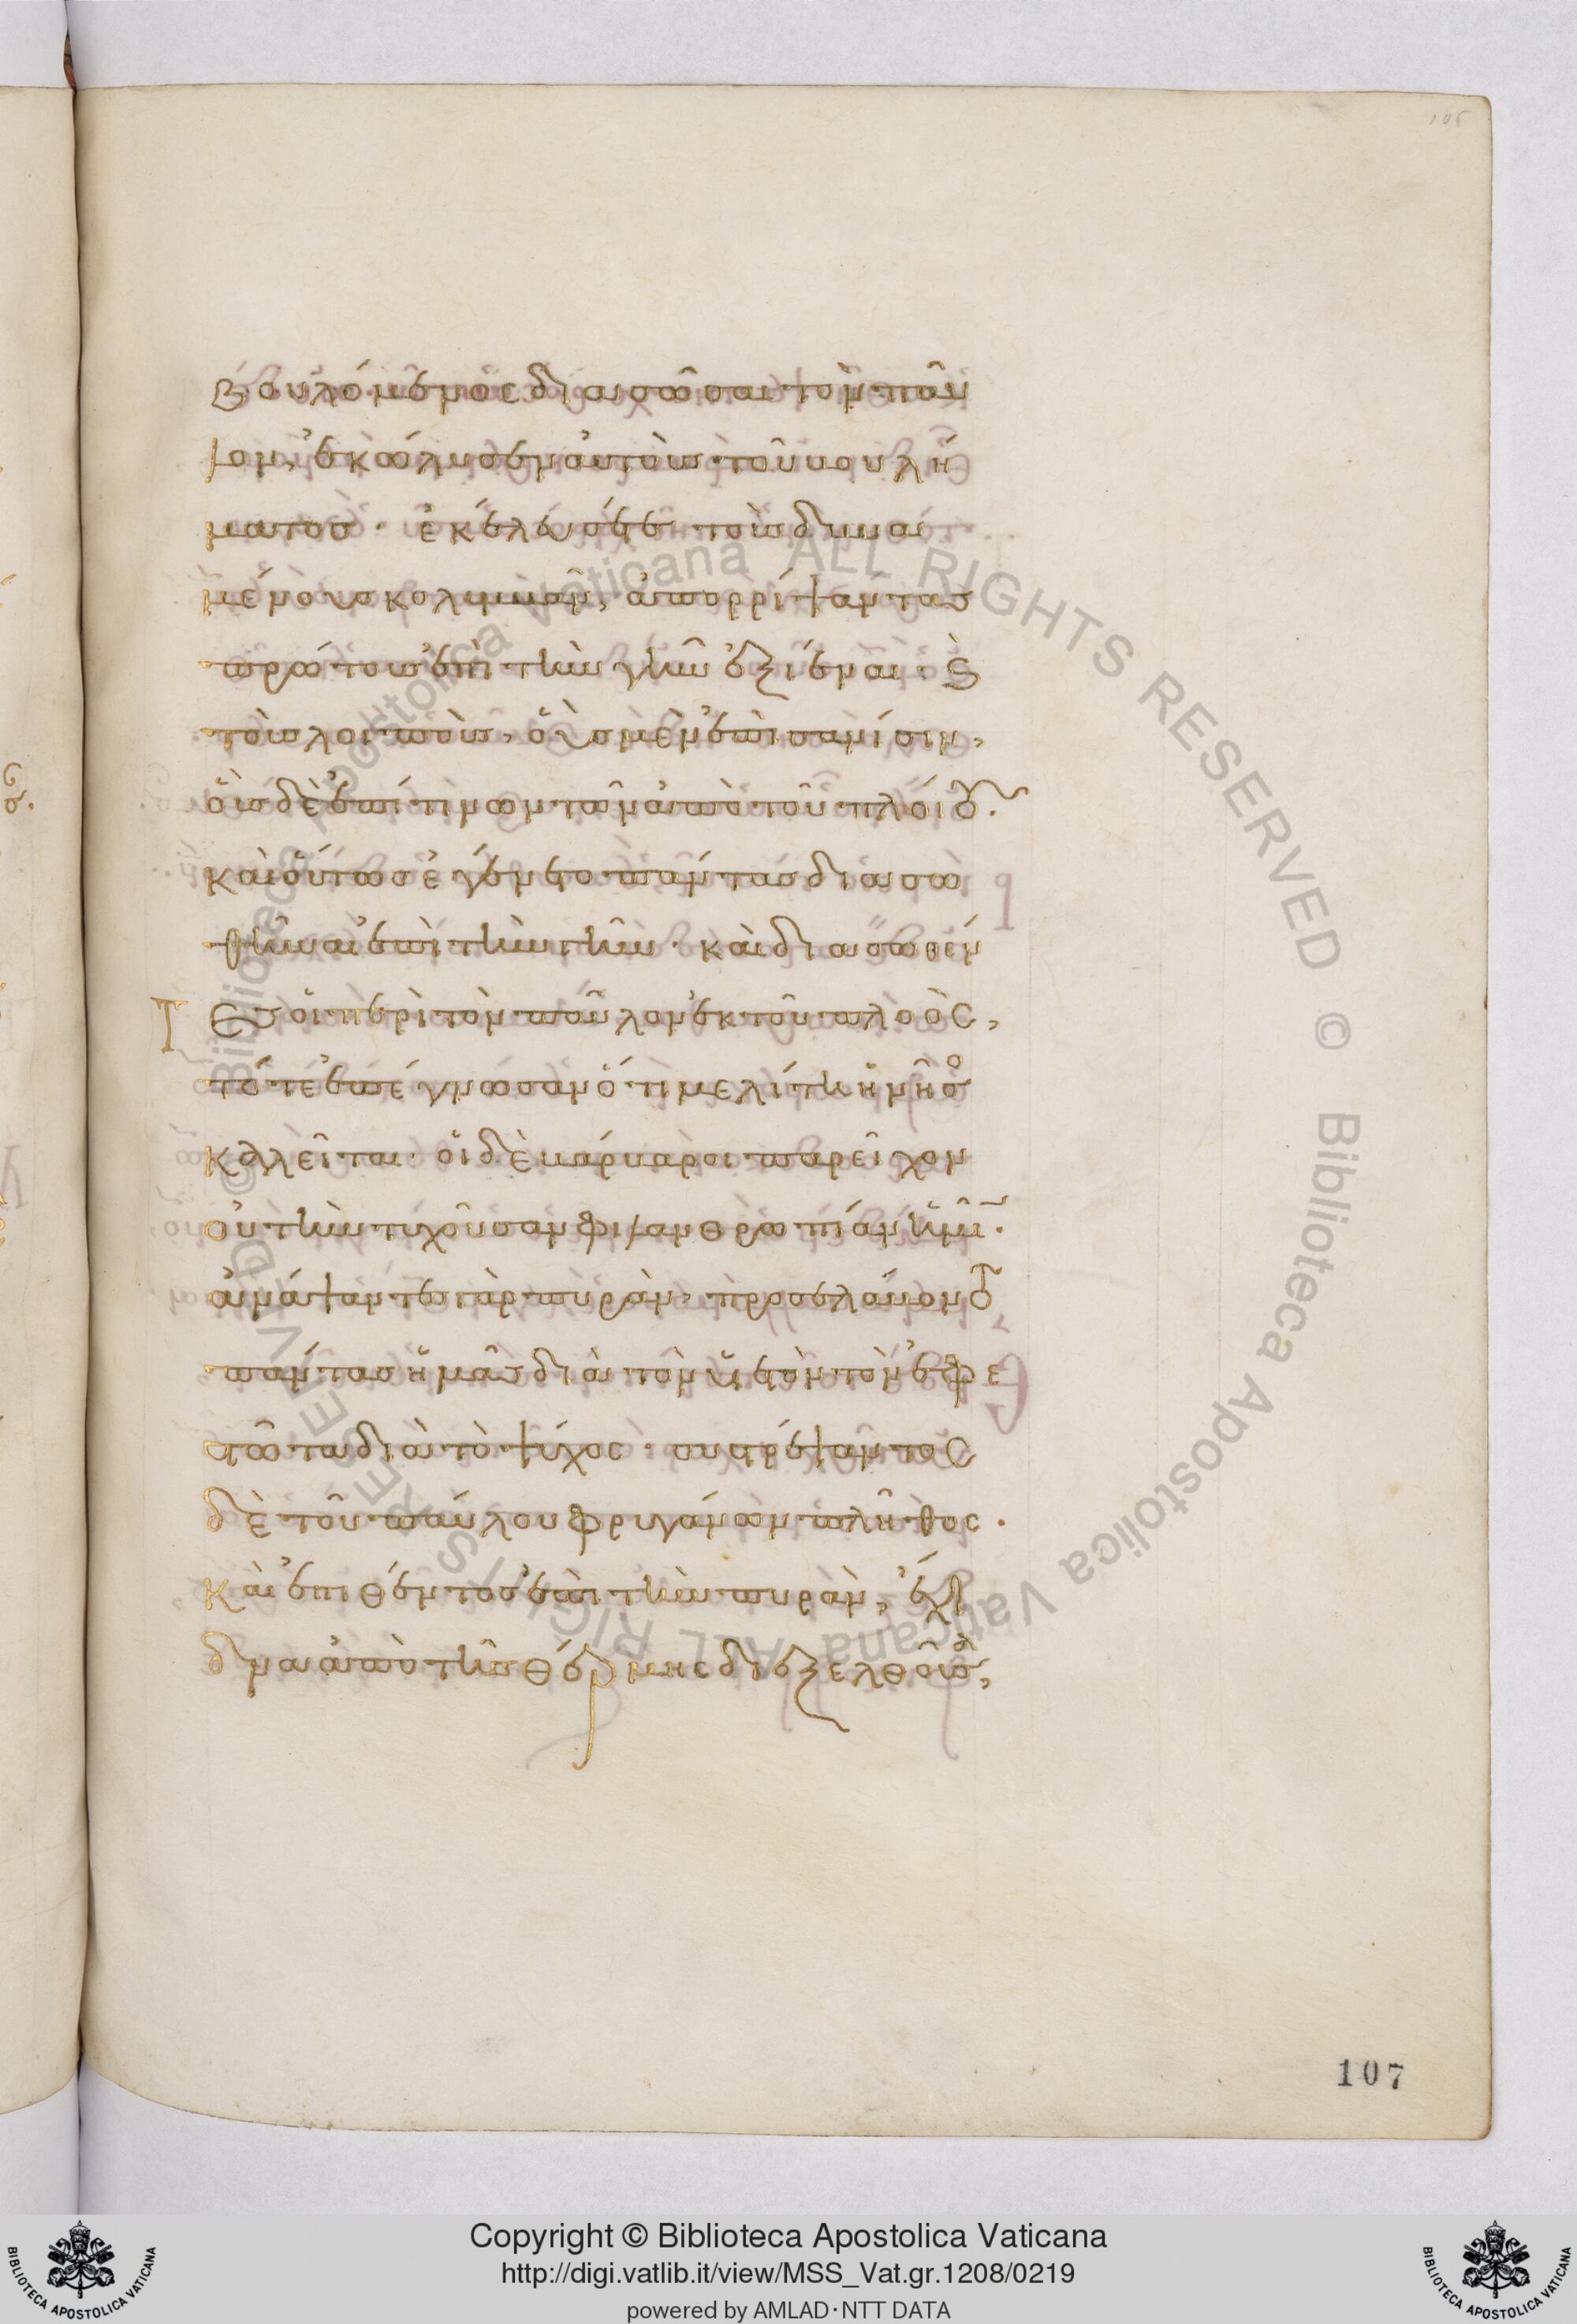 βουλόμενος διασῶσαι τὸν παῦ
λον, ἐκώλυσεν αὐτοὺς τοῦ βουλή
ματος· ἐκέλευσέ τε τοὺς δυνα
μένους κολυμβᾶν, ἀπορρίψαντας
πρώτους ἐπὶ τὴν γῆν ἐξιέναι· ϗ
τοὺς λοιποὺς, οὓς μὲν ἐπὶ σανίσιν,
οὓς δὲ ἐπί τινων τῶν ἀπὸ τοῦ πλοίου.
καὶ οὕτως ἐγένετο πάντας διασω
θῆναι ἐπὶ τὴν γῆν· καὶ διασωθέν
τες οἱ περὶ τὸν παῦλον ἐκ τοῦ πλοὸς,
τότε ἐπέγνωσαν ὅτι μελίτη ἡ νῆσος
καλεῖται· οἱ δὲ βάρβαροι παρεῖχον
οὐ τὴν τυχοῦσαν φιλανθρωπίαν ἡμῖν·
ἀνάψαντες γὰρ πυρὰν, προσελάβοντο
πάντας ἡμᾶς διὰ τὸν ὑετὸν τὸν ἐφε
στῶτα διὰ τὸ ψύχος· συστρέψαντος
δὲ τοῦ παύλου φρυγάνων πλῆθος·
καὶ ἐπιθέντος ἐπὶ τὴν πυρὰν, ἔχι
δνα ἀπὸ τῆς θέρμης διεξελθοῦσα,
107
© Biblioteca Apostolica Vaticana ALL RIGHTS RESERVED © Biblioteca Apostolica Vaticana ALL RIGHTS RESERVED
Copyright © Biblioteca Apostolica Vaticana
http://digi.vatlib.it/view/MSS_Vat.gr.1208/0219
powered by AMLAD·NTT DATA
BIBLIOTECA APOSTOLICA VATICANA
BIBLIOTECA APOSTOLICA VATICANA